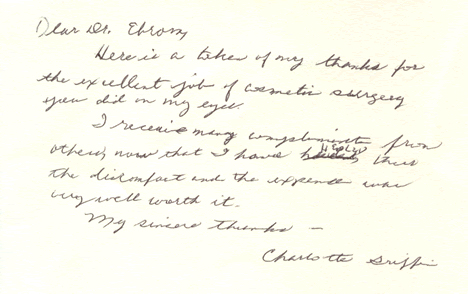 Dear Dr. Ebrom,
Here is a token of my thanks for
the excellent job of cosmetic surgery
you did on my eyes.
I receive many compliments from
others, now that I have HEALED thus
the discomfort and the expense was
very well worth it.
My sincere thanks –
Charlotte Griffin